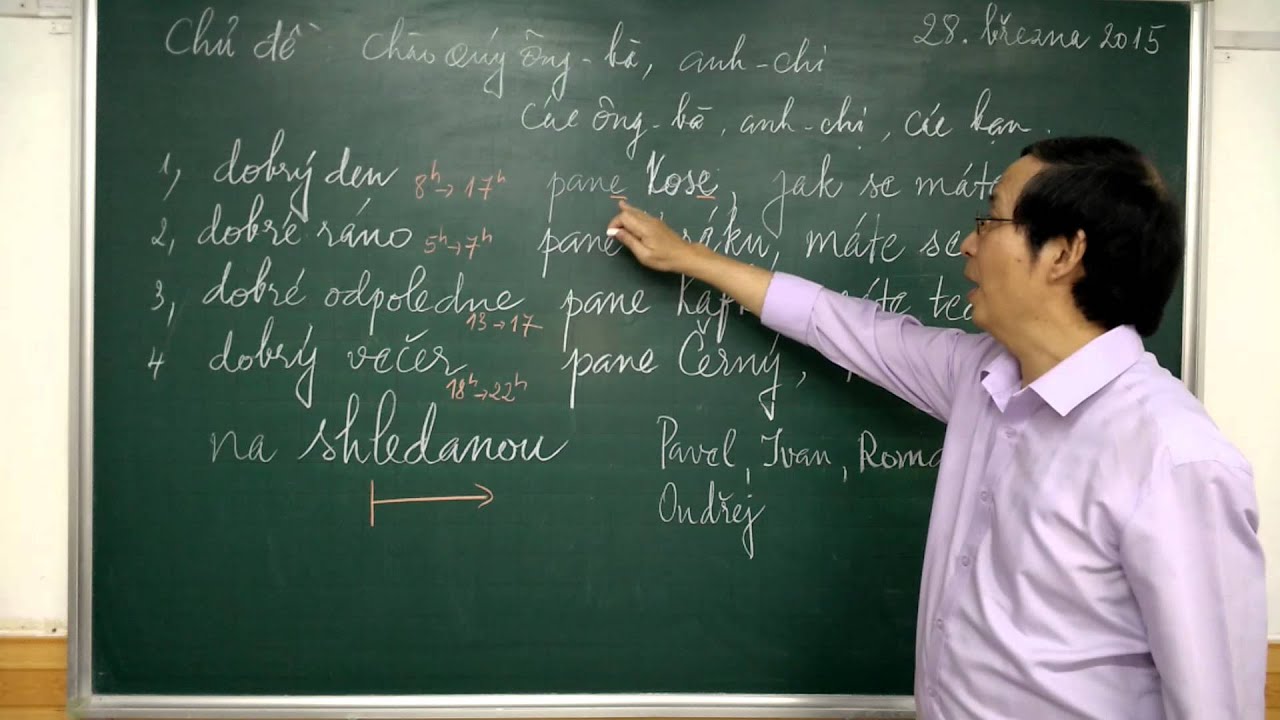 28. března 2015
Chủ đề chào quý ông-bà, anh-chị
Các ông-bà, anh-chị, các bạn.
1, dobrý den 8h→17h pane Kose, jak se máte
2, dobré ráno 5h→7h pane máte se
3, dobré odpoledne 13→17 pane
4 dobrý večer 18h→22h pane Černý,
na shledanou Pavel, Ivan,
Ondřej